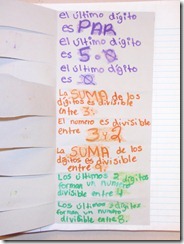 el último dígito
es PAR
el último dígito
es 5 o 0
el último dígito
es 0
La SUMA de los
dígitos es divisible
entre 3.
El numero es divisible
entre 3 y 2
La SUMA de los
dígitos es divisible
entre 9.
Los últimos 2 dígitos
forman un numero
divisible entre 4
Los últimos 3 dígitos
forman un numero
divisible entre 8.